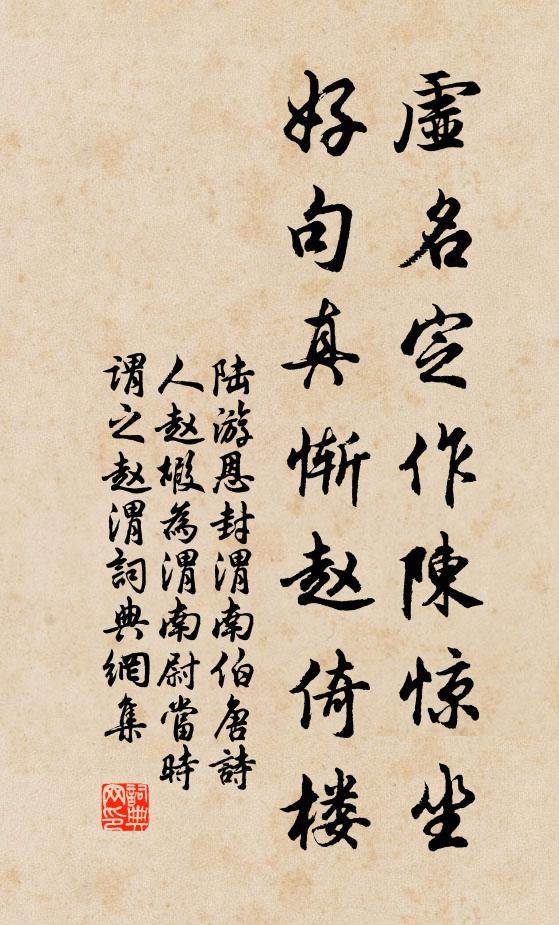 虚名定作陳惊坐
好句真惭赵倚楼
陆游恩封渭南伯唐詩
人赵嘏為渭南尉當時
謂之赵渭詞典網集
詞典网印